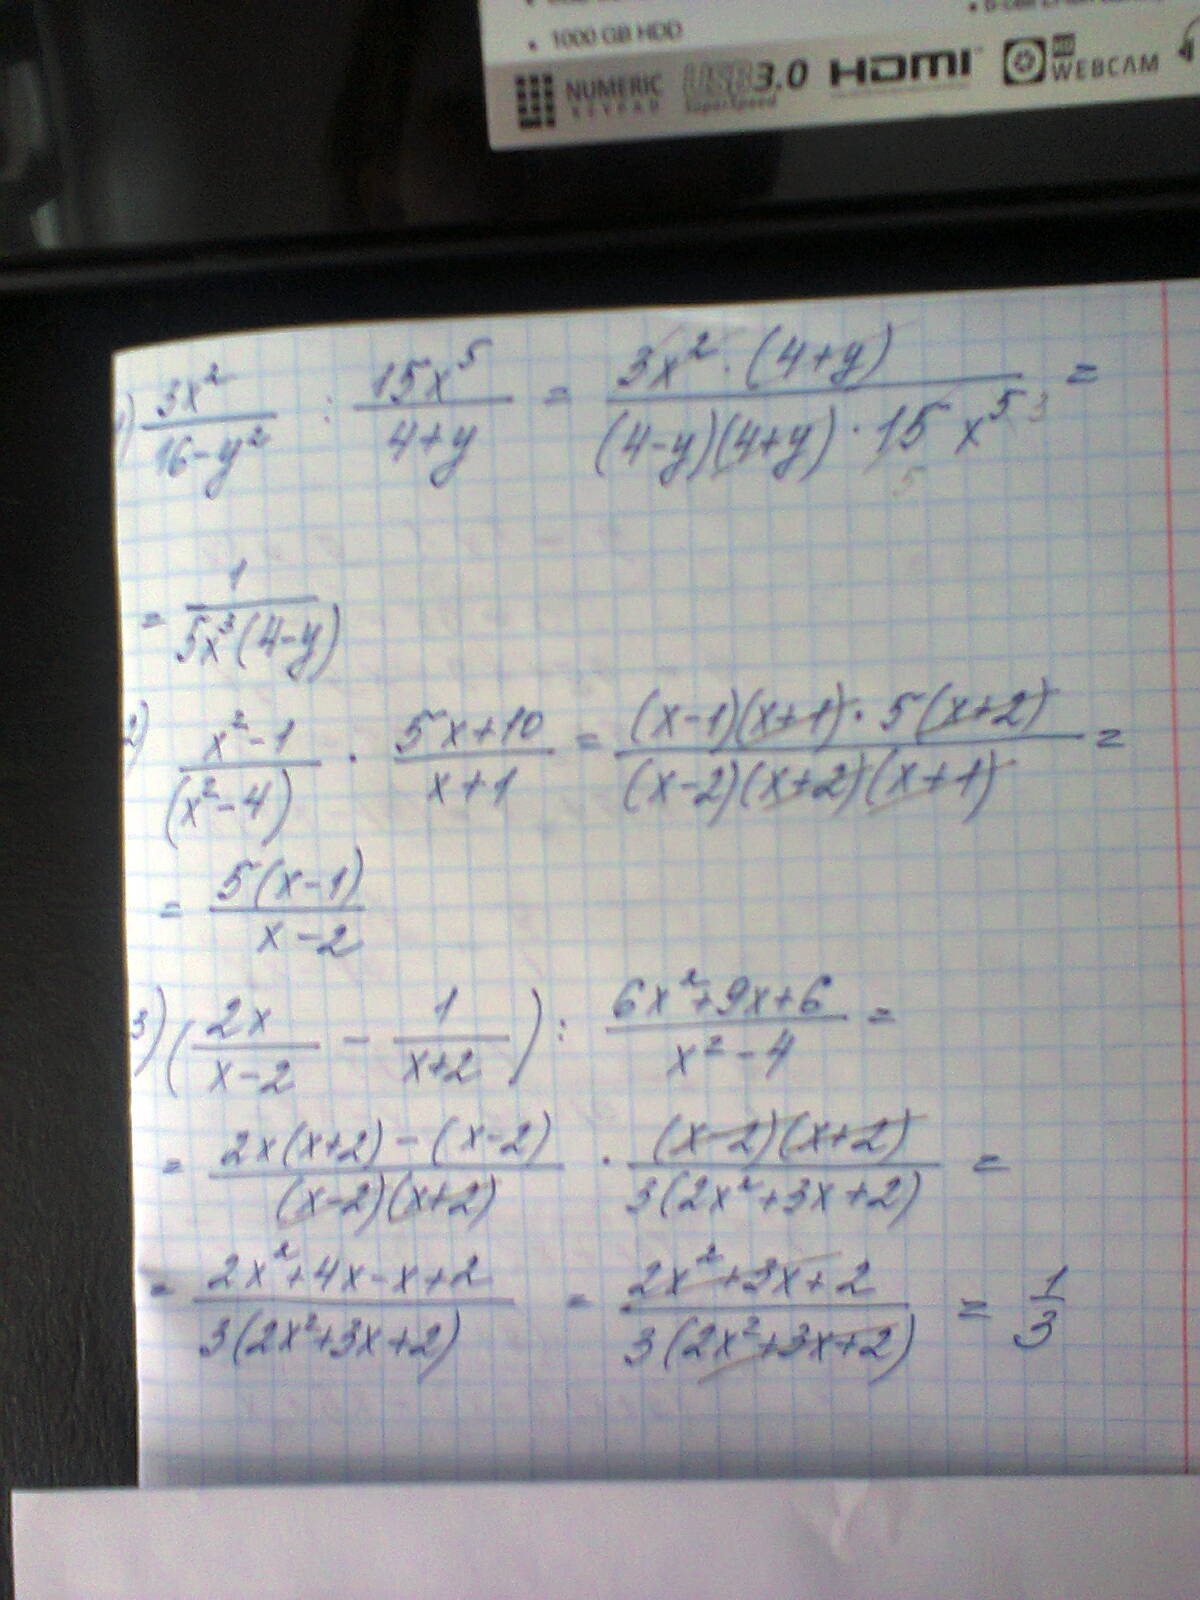 1000 GB HDD
NUMERIC KEYPAD USB 3.0 SuperSpeed HDMI HD WEBCAM
1) 3x²/(16-y²) : 15x⁵/(4+y) = 3x²·(4+y)/((4-y)(4+y)·15x⁵) =
5 3
= 1/(5x³(4-y))
2) (x²-1)/(x²-4) · (5x+10)/(x+1) = (x-1)(x+1)·5(x+2)/((x-2)(x+2)(x+1)) =
= 5(x-1)/(x-2)
3) (2x/(x-2) - 1/(x+2)) : (6x²+9x+6)/(x²-4) =
= (2x(x+2)-(x-2))/((x-2)(x+2)) · (x-2)(x+2)/(3(2x²+3x+2)) =
= (2x²+4x-x+2)/(3(2x²+3x+2)) = (2x²+3x+2)/(3(2x²+3x+2)) = 1/3